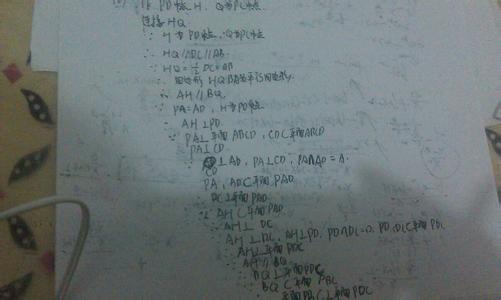 取 PD中点 H, Q为PC中点
连接 HQ
∵ H为PD中点, Q为PC中点
∴ HQ//DC//AB
∵ HQ=½DC=AB
∴ 四边形 HQBA为平行四边形
∴ AH//BQ
∵ PA=AD, H为PD中点
∴ AH⊥PD
∵ PA⊥平面ABCD, CD⊂平面ABCD
PA⊥CD
CD⊥AD, PA⊥CD, PA∩AD=A
PA, AD⊂平面PAD
DC⊥平面PAD
AH⊂平面PAD
AH⊥DC
AH⊥DC, AH⊥PD, PD∩DC=D, PD,DC⊂平面PDC
AH⊥平面PDC
AH//BQ
BQ⊥平面PDC
BQ⊂平面PBC
平面PBC⊥平面PDC